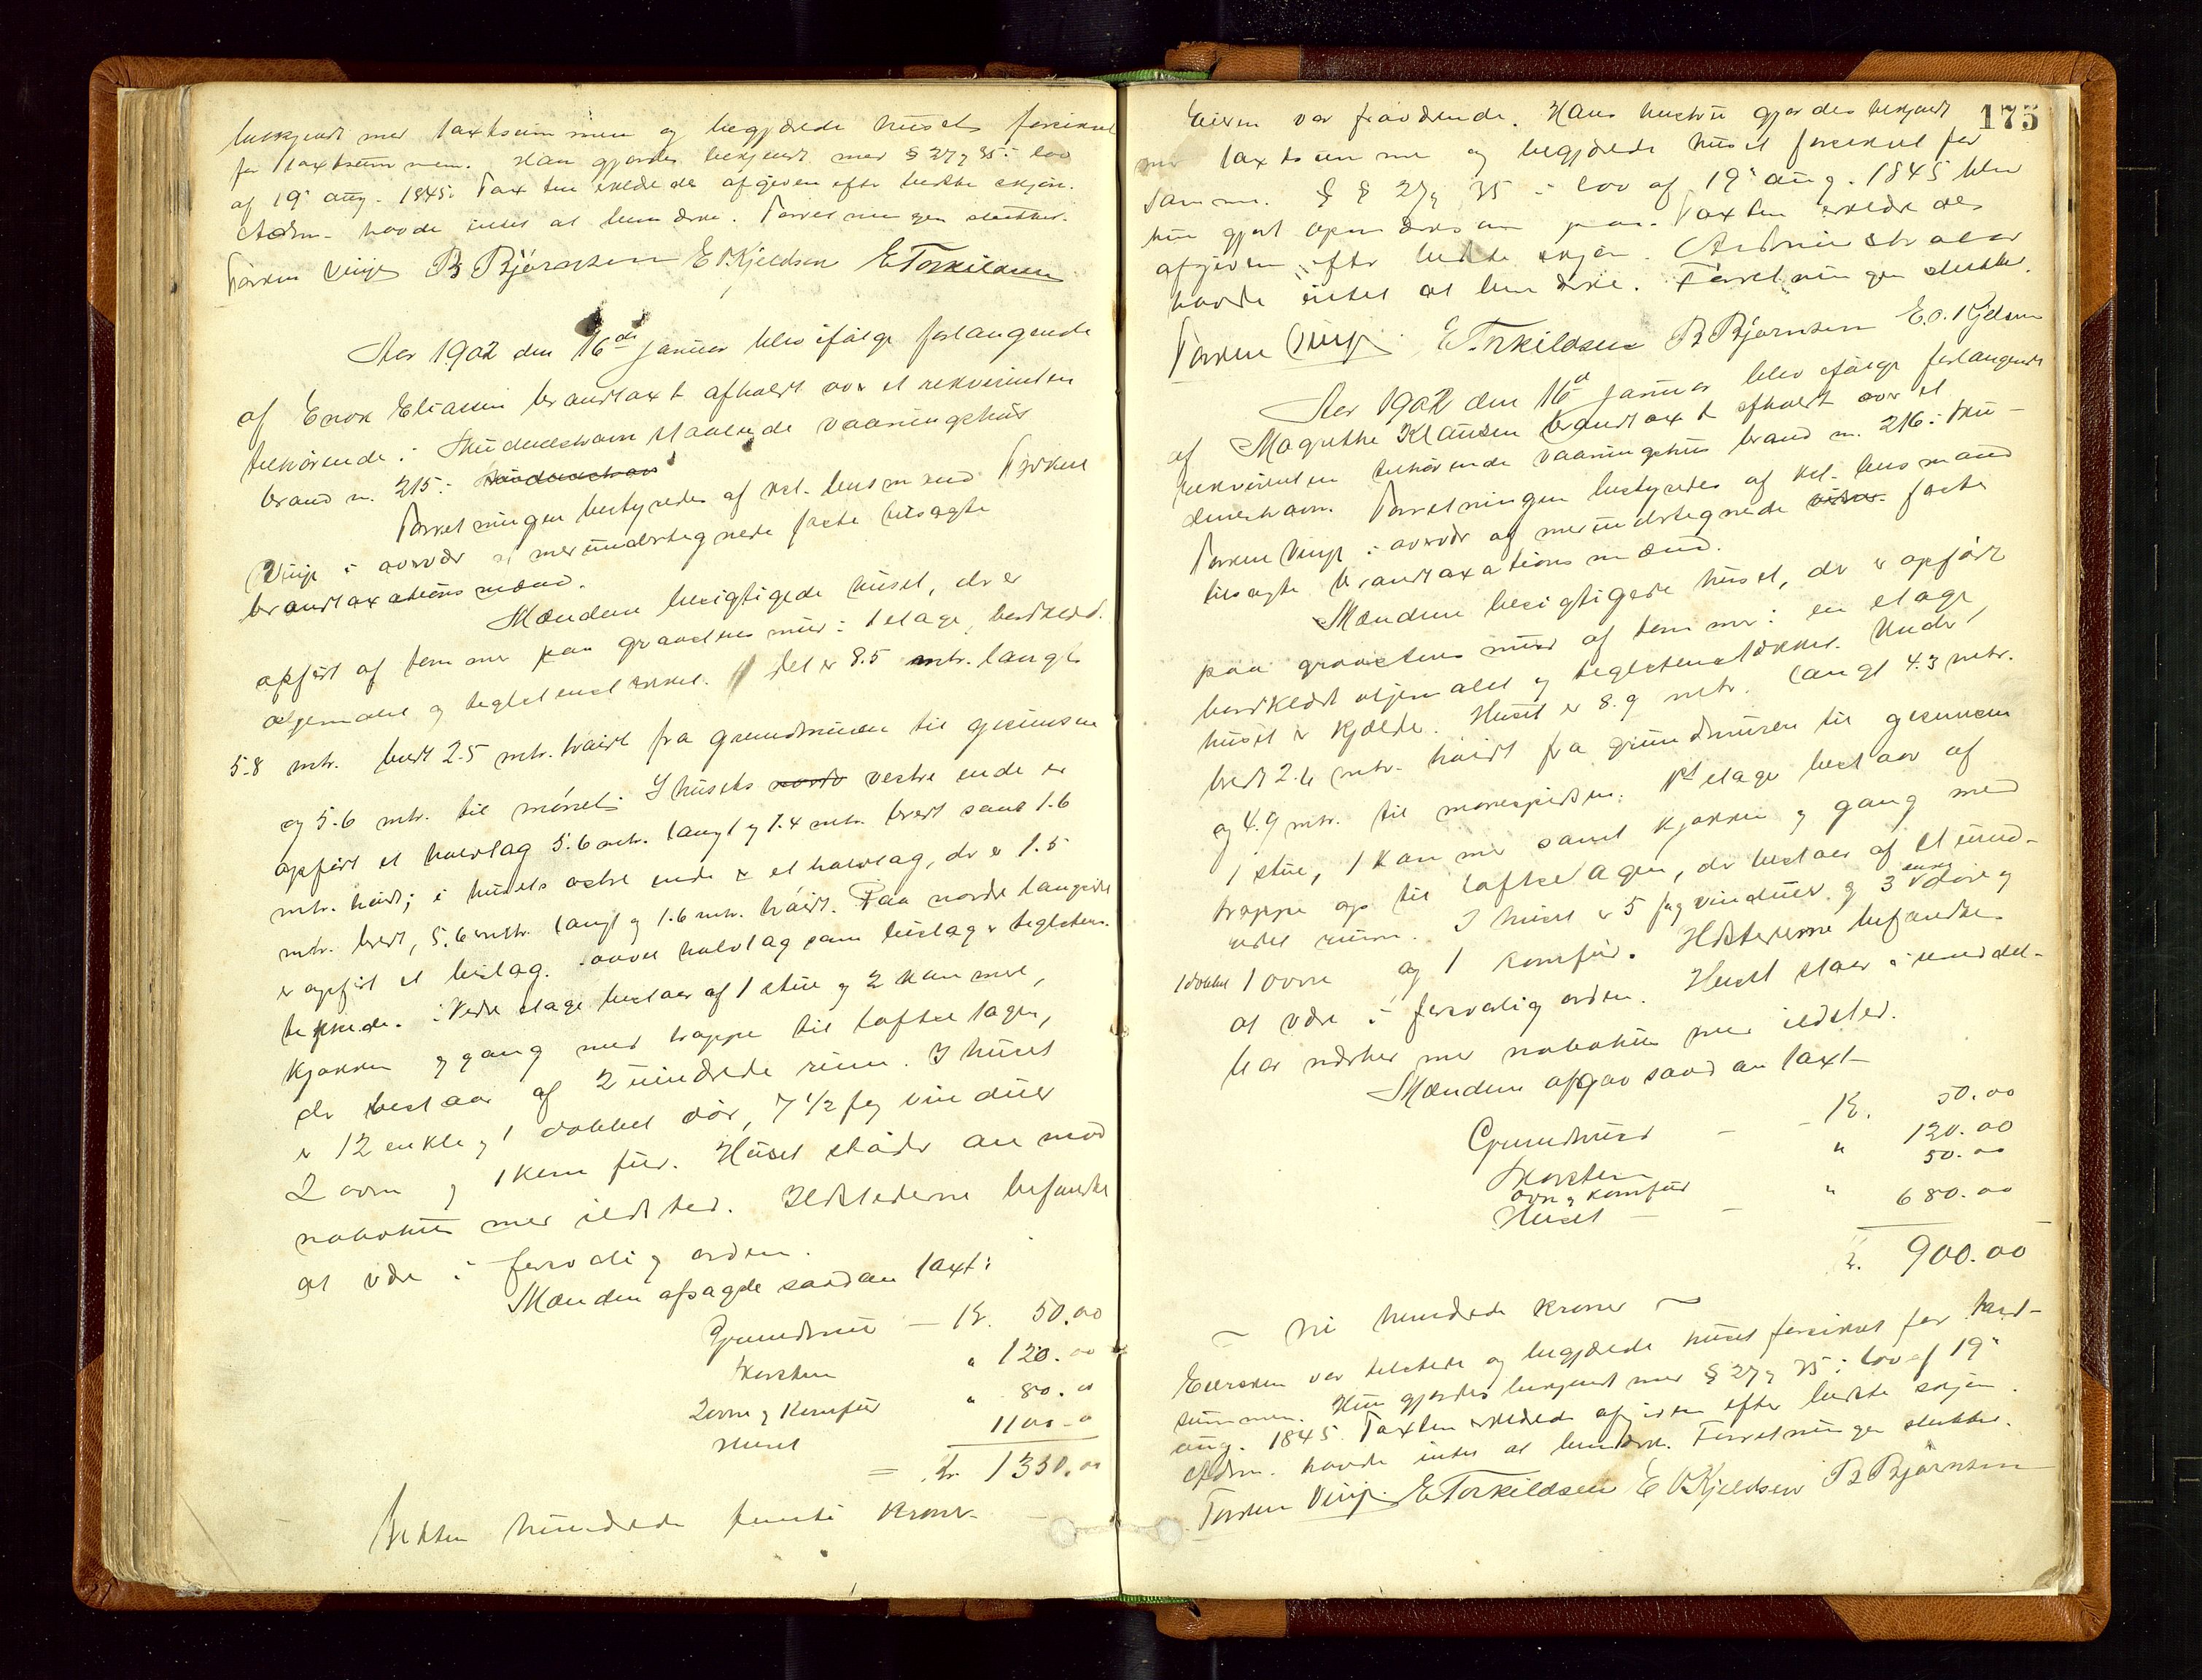 bekjendt med taxtsummen og begjærede huset forsikret
for taxtsummen. Han gjordes bekjendt med § 27 og 35 i lov
af 19de aug. 1845. Taxten erklæredes afgiven efter bedste skjøn.
Adm. havde intet at bemærke. Forretningen sluttet.
Torken Vinje B Bjørnsen E O Kjeldsen E Torkildsen
Aar 1902 den 16de januar blev ifølge forlangende
af Enok Eliassen brandtaxt afholdt over et rekvirenten
tilhørende i Skudeneshavn staaende vaaningshus
brand n. 215 i Skudeneshavn
Forretningen bestyredes af kst. lensmand Torken
Vinje i overvær af medundertegnede faste tilsagte
brandtaxationsmænd.
Mændene besigtigede huset, der er
opført af tømmer paa graastens mur i 1 etage, bordklædt
oljemalet og teglstenstækket. Det er 8.5 mtr. langt
5.8 mtr. bredt 2.5 mtr. høidt fra grundmuren til gesimsen
og 5.6 mtr. til mønet. I husets nordr vestre ende er
opført et halvtag 5.6 mtr. langt og 1.4 mtr. bredt samt 1.6
mtr. høidt; i husets østre ende er et halvtag, der er 1.5
mtr. bredt, 5.6 mtr. langt og 1.6 mtr. høidt. Paa nordre langside
er opført et bislag. saavel halvtag som bislag er teglstens
tækkede. Nedre etage bestaar af 1 stue og 2 kammere,
kjøkken og gang med trappe til loftsetagen,
der bestaar af 2 uindrede rum. I huset
er 12 enkle og 1 dobbel dør, 7 1/2 fag vinduer
2 ovne og 1 komfur. Huset støder an mod
nabohus med ildsted. Ildstederne befandtes
at være i forsvarlig orden.
Mændene afsagde saadan taxt:
Grundmur — Kr. 50.00
Skorsten " 120.00
2 ovne og Komfur " 80.00
Huset 1100.00
= Kr. 1350.00
Tretten hundrede femti kroner
175
Eieren var fraværende. Hans hustru gjordes bekjendt
med taxtsummen og begjærede huset forsikret for
samme. § § 27 og 35 i lov af 19de aug. 1845 blev
hun gjort opmærksom paa. Taxten erklæredes
afgiven efter bedste skjøn. Administrator
havde intet at bemærke. Forretningen sluttet.
Torken Vinje E Torkildsen B Bjørnsen E. O. Kjeldsen
Aar 1902 den 16de januar blev ifølge forlangende
af Magrethe Klausen brandtaxt afholdt over et
rekvirenten tilhørende vaaningshus brand n. 216 i Sku-
deneshavn. Forretningen bestyredes af kst. lensmand
Torken Vinje i overvær af medundertegnede faste
tilsagte brandtaxationsmænd.
Mændene besigtigede huset, der er opført
paa graastens mur af tømmer i en etage,
bordklædt oljemalet og teglstenstækket. Under
huset er kjelder. Huset er 8.9 mtr. langt 4.3 mtr.
bredt 2.6 mtr. høidt fra grundmuren til gesimsen
og 4.9 mtr. til mønespidsen. 1st etage bestaar af
1 stue, 1 kammer samt kjøkken og gang med
trappe op til loftsetagen, der bestaar af et uind-
redet rum. I huset er 5 fag vinduer og 3 enkle døre og
1 dobbel 1 ovn og 1 komfur. Ildstederne befandtes
at være i forsvarlig orden. Huset staar i umiddel-
bar nærhed med nabohus med ildsted.
Mændene afgav saadan taxt
Grundmur — — Kr. 50.00
Skorsten " 120.00
ovn og komfur 50.00
Huset — — " 680.00
Kr. 900.00
~ Ni hundrede kroner ~
Eiersken var tilstede og begjærede huset forsikret for taxt-
summen. Hun gjordes bekjendt med § 27 og 35 i lov af 19de
aug. 1845. Taxten erklæredes afgiven efter bedste skjøn.
Adm. havde intet at bemærke. Forretningen sluttet.
Torken Vinje E Torkildsen E O Kjeldsen B Bjørnsen